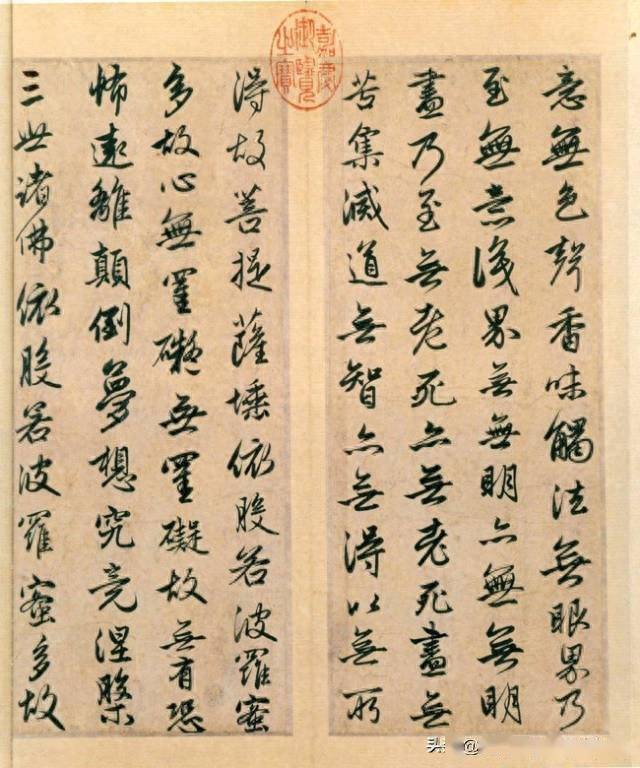 意無色聲香味觸法無眼界乃
至無意識界無無明亦無無明
盡乃至無老死亦無老死盡無
苦集滅道無智亦無得以無所
得故菩提薩埵依般若波羅蜜
多故心無罣礙無罣礙故無有恐
怖遠離顛倒夢想究竟涅槃
三世諸佛依般若波羅蜜多故
嘉慶御覽之寶
头 @